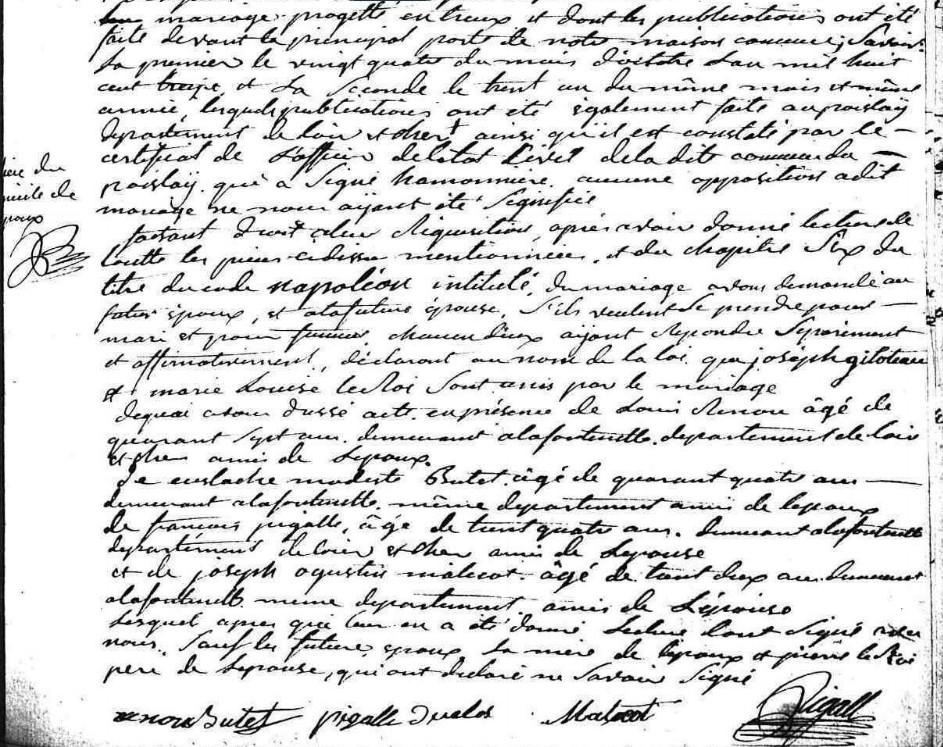 mariage projetté entreux et dont les publications ont été
faite devant la principal porte de notre maison commune; Savoir
La premier le vingt quatre du mois d'octobre Lan mil huit
cent treize, et La Seconde le trent un du même mois et même
année, lesquels publications ont été également faite au poislay
departement de loir et cher, ainsi qu'il est constaté par le
certificat de L'officier de létat Civil de la dite commune du
poislay qui a Signé hamonniere, aucune opposition audit
mariage ne nous ayant été Signifiée
faisant droit à leur Réquisition, après avoir donné lecture de
toutte les pieces cidessus mentionnées, et du chapitre Six du
titre du code napoléon intitulé, du mariage avons demandé au
futur époux, et a la future épouse, S'ils veulent Se prendre pour
mari et pour femme, chacun d'eux ayant Répondu Séparément
et affirmativement, déclarons au nom de la loi que joseph giloteau
et marie Louise le Roi Sont unis par le mariage
dequoi avons dressé acte en présence de Louis Renou âgé de
quarant Sept ans, demeurant a lafontenelle, departement de loir
et cher amis de Lepoux.
De eustache modeste Butet, âgé de quarant quatre ans
demeurant a lafontenelle même departement amis de lepoux
de francois pigalle, âgé de trent quatre ans, demeurant a lafontenelle
departement de loir et cher amis de Lepouse
et de joseph agustin malecot âgé de trent deux ans demeurant
a lafontenelle même departement amis de L'épouse
Lesquel apres qu'il leur en a été donné Lecture L'ont Signé avec
nous, Sauf les future epoux La mere de lepoux et pierre le Roi
pere de Lepouse, qui ont declaré ne Savoir Signé
ère du
domicile de
époux
Renou Butet pigalle Malecot Pigall